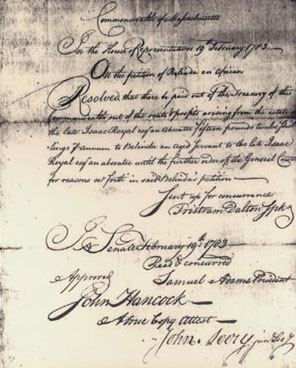 Commonwealth of Massachusetts
In the House of Representatives 19th February 1783
On the petition of Belinda an African
Resolved that there be paid out of the Treasury of this
Commonwealth out of the rents & profits arising from the estate
the late Isaac Royal esqr an absentee fifteen pounds twelve shil
lings P annum to Belinda an aged servant to the late Isaac
Royal esqr an absentee until the further order of the General Court
for reasons set forth in said Belinda's petition
Sent up for concurrence
Tristram Dalton Spkr
In Senate February 19th 1783
Read & concurred
Samuel Adams President
Approved
John Hancock
A true Copy Attest
John Avery jun Secy